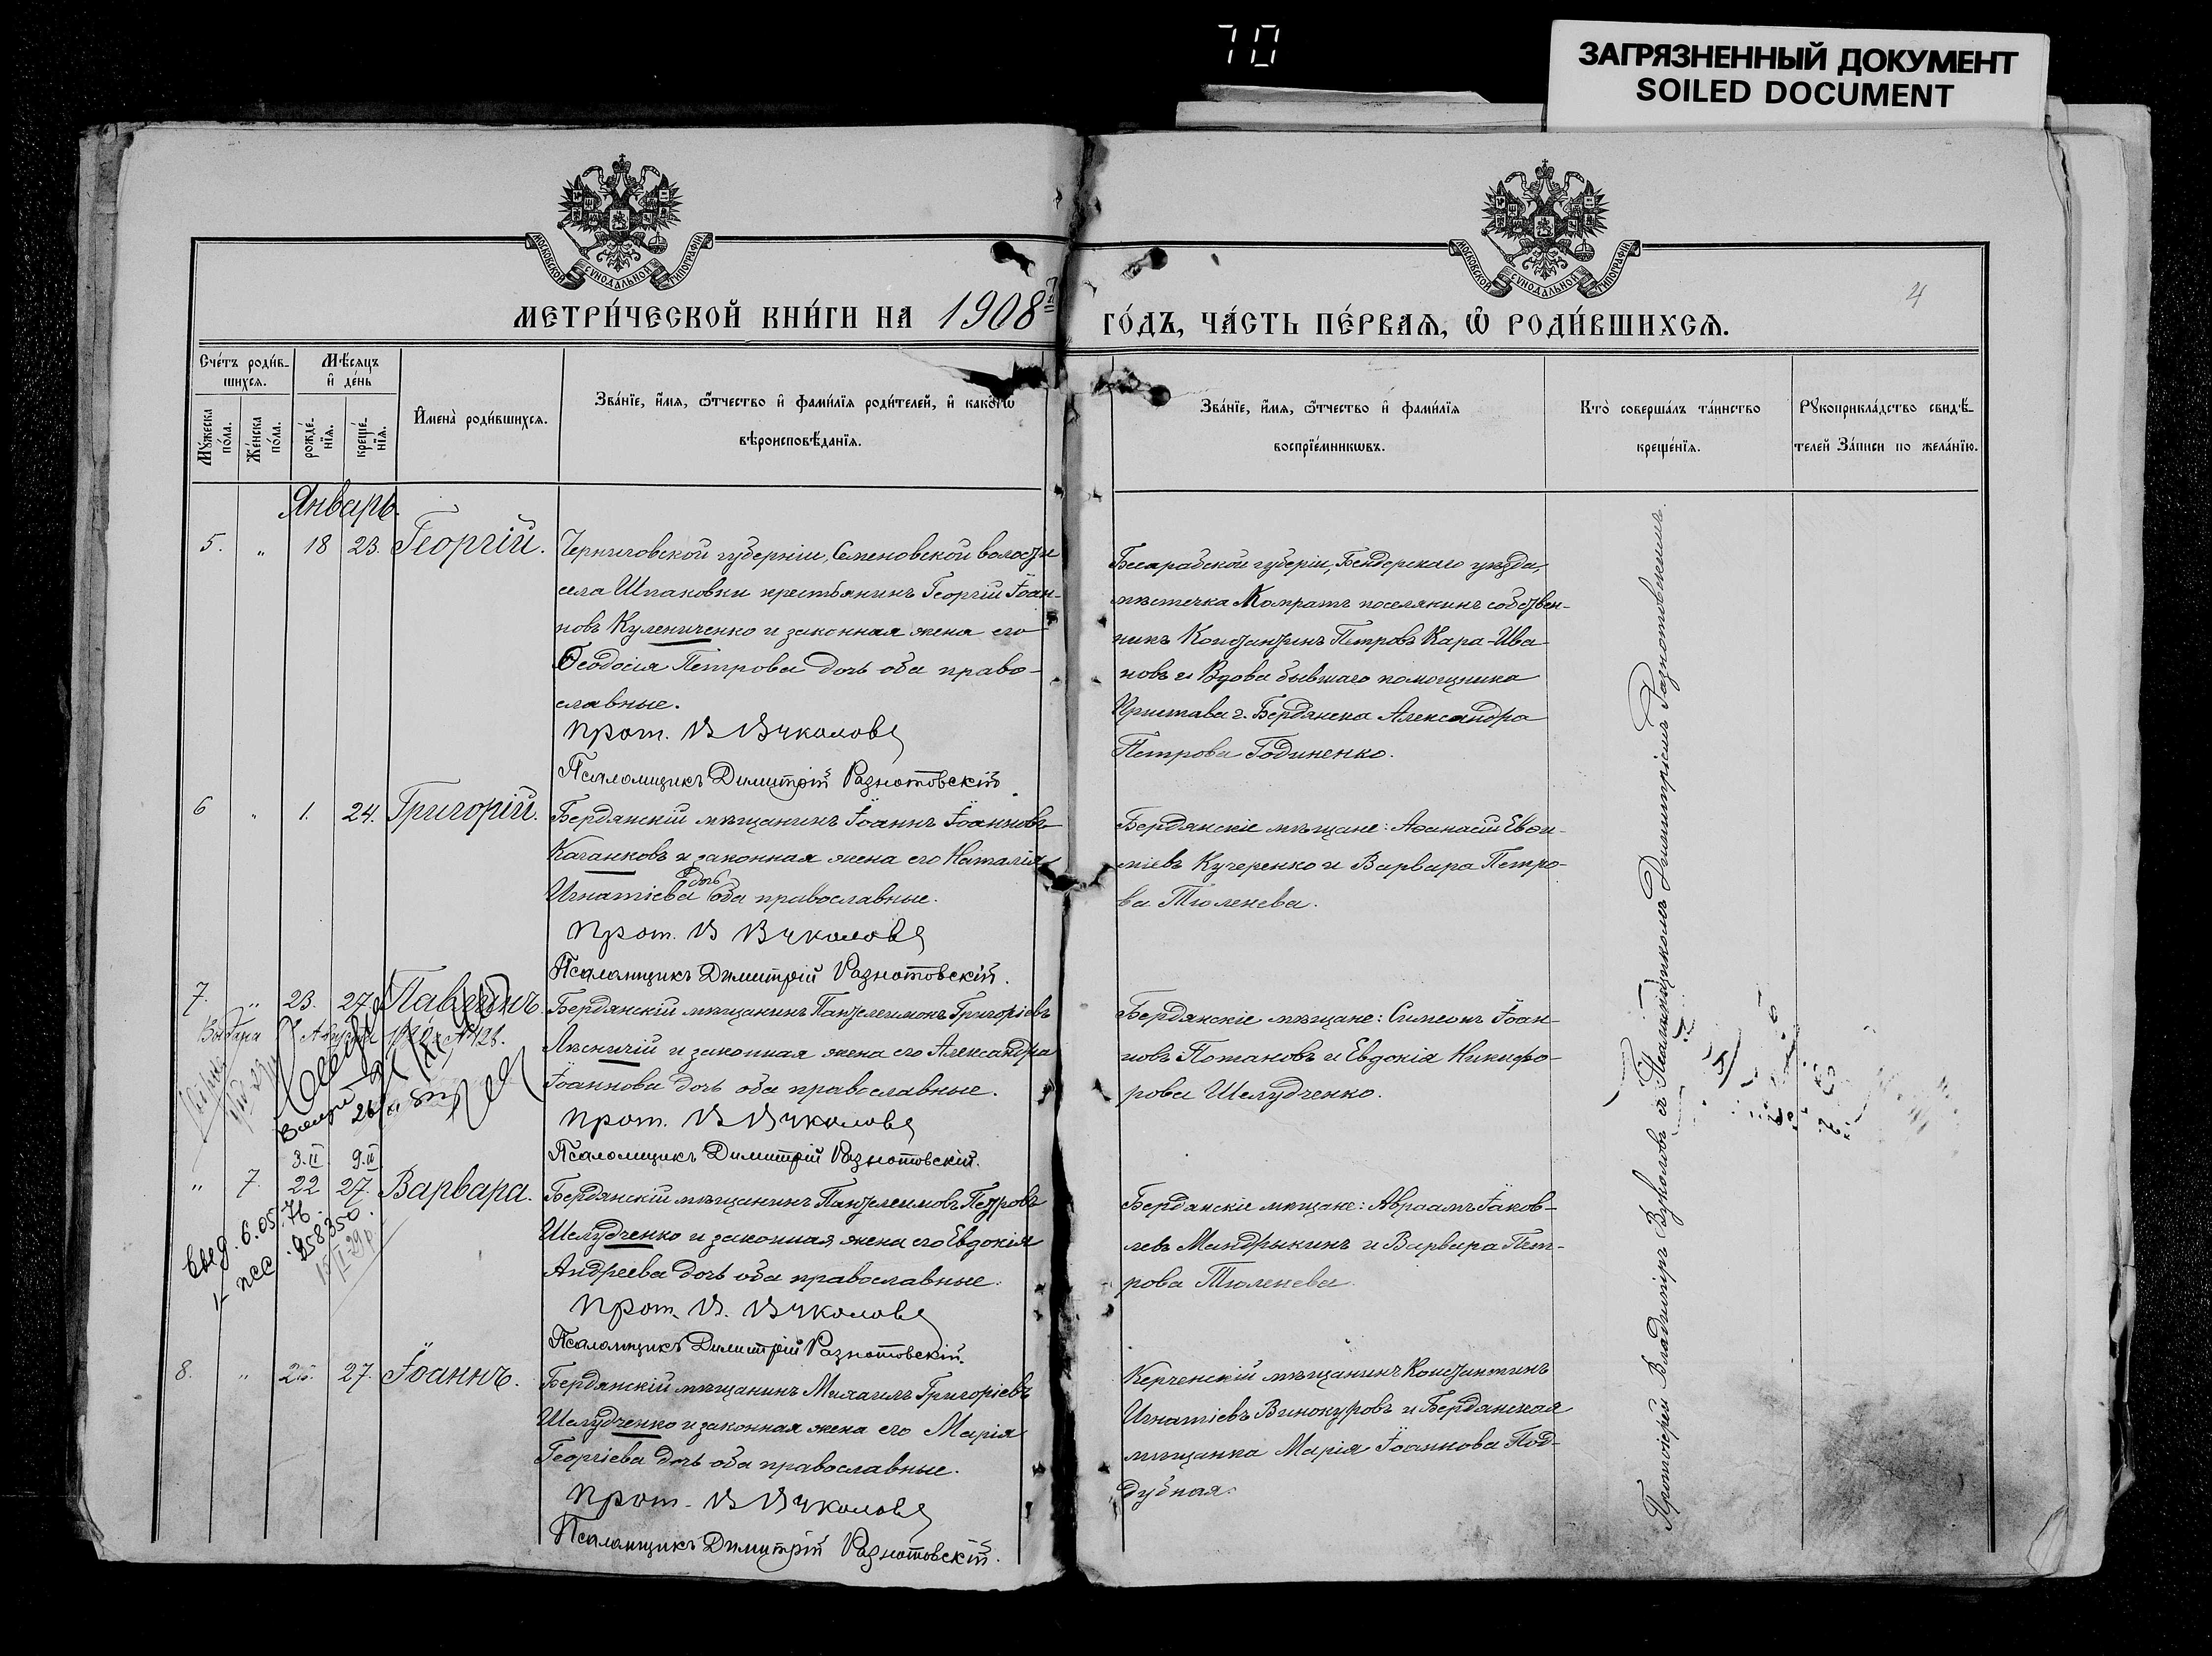 70
ЗАГРЯЗНЕННЫЙ ДОКУМЕНТ
SOILED DOCUMENT
МОСКОВСКОЙ СѴНОДАЛЬНОЙ ТИПОГРАФІИ
МОСКОВСКОЙ СѴНОДАЛЬНОЙ ТИПОГРАФІИ
4
МЕТРИ́ЧЕСКОЙ КНИ́ГИ НА 1908й
ГО́ДЪ, ЧА́СТЬ ПЕ́РВАѦ, Ѡ РОДИ́ВШИХСѦ.
Сче́тъ роди́в-
шихся.
Мѣ́сяцъ
и҆ де́нь
Мꙋ́жеска по́ла.
Же́нска по́ла.
рожде́-
нїя.
креще́-
нїя.
И҆мена̀ роди́вшихся.
Зва́нїе, и҆́мя, ѻ҆́тчество и҆ фами́лїя роди́телей, и҆ како́гѡ
вѣроисповѣ́данїя.
Зва́нїе, и҆́мя, ѻ҆́тчество и҆ фами́лїя
воспрїе́мникѡвъ.
Кто̀ соверша́лъ та́инство
креще́нїя.
Рꙋкоприкла́дство свидѣ́-
телей за́писи по жела́нїю.
Январь.
5. " 18 23. Георгій.
Черниговской губерніи, Семеновской волости
села Шпаковки крестьянинъ Георгій Іоан-
новъ Кулениченко и законная жена его
Ѳеодосія Петрова дочь оба право-
славные.
Прот. В Вуколовъ
Псаломщикъ Димитрій Разнотовскій
Бесарабской губеріи, Бендерскаго уѣзда,
мѣстечка Комратъ поселянинъ собствен-
никъ Константинъ Петровъ Кара-Ива-
новъ и Вдова бывшаго помощника
Пристава г. Бердянска Александра
Петрова Годиненко.
6 " 1. 24. Григорій.
Бердянскій мѣщанинъ Іоаннъ Іоанновъ
Каганковъ и законная жена его Наталія
Игнатіева дочь оба православные.
Прот. В Вуколовъ
Псаломщикъ Димитрій Разнотовскій.
Бердянскіе мѣщане: Аѳанасій Евѳи-
міевъ Кучеренко и Варвара Петро-
ва Тюленева.
7. " 23. 27.
Бердянскій мѣщанинъ Пантелеимонъ Григоріевъ
Лѣсничій и законная жена его Александра
Іоаннова дочь оба православные.
Прот. В Вуколовъ
Псаломщикъ Димитрій Разнотовскій.
Бердянскіе мѣщане: Симеонъ Іоан-
новъ Потановъ и Евдокія Никифо-
рова Шелудченко.
№128.
3.II 9.II
" 7. 22 27. Варвара.
Бердянскій мѣщанинъ Пантелеимовъ Петровъ
Шелудченко и законная жена его Евдокія
Андреева дочь оба православные.
Прот. В. Вуколовъ
Псаломщикъ Димитрій Разнотовскій.
Бердянскіе мѣщане: Авраамъ Іаков-
левъ Мандрыкинъ и Варвара Пет-
рова Тюленева.
6.05.76.
958350.
8. " 27. Іоаннъ.
Бердянскій мѣщанинъ Михаилъ Григоріевъ
Шелудченко и законная жена его Марія
Георгіева дочь оба православные.
Прот. В Вуколовъ
Псаломщикъ Димитрій Разнотовскій.
Керченскій мѣщанинъ Константинъ
Игнатіевъ Винокуровъ и Бердянская
мѣщанка Марія Іоаннова Под-
дубная.
Протоіерей Владиміръ Вуколовъ съ Псаломщикомъ Димитріемъ Разнотовскимъ.